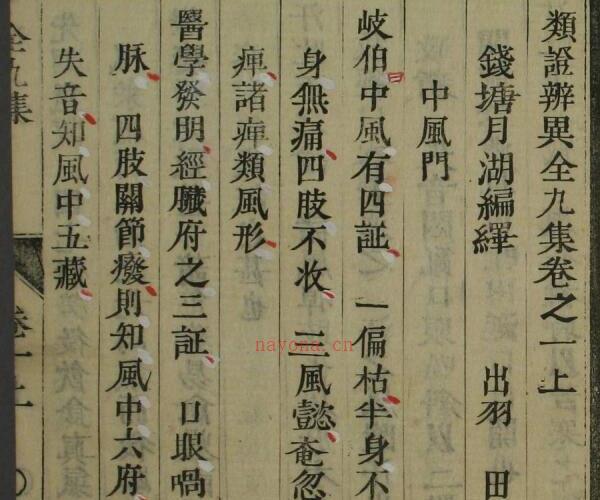 類證辨異全九集卷之一上
錢塘月湖編繹 出羽 田
中風門
岐伯曰中風有四証 一偏枯半身不
身無痛四肢不收 三風懿奄忽
痺諸痺類風形
醫學發明經臟府之三証 口眼喎
脉 四肢關節癈則知風中六府
失音知風中五藏
全九集 卷一上
nayona.cn